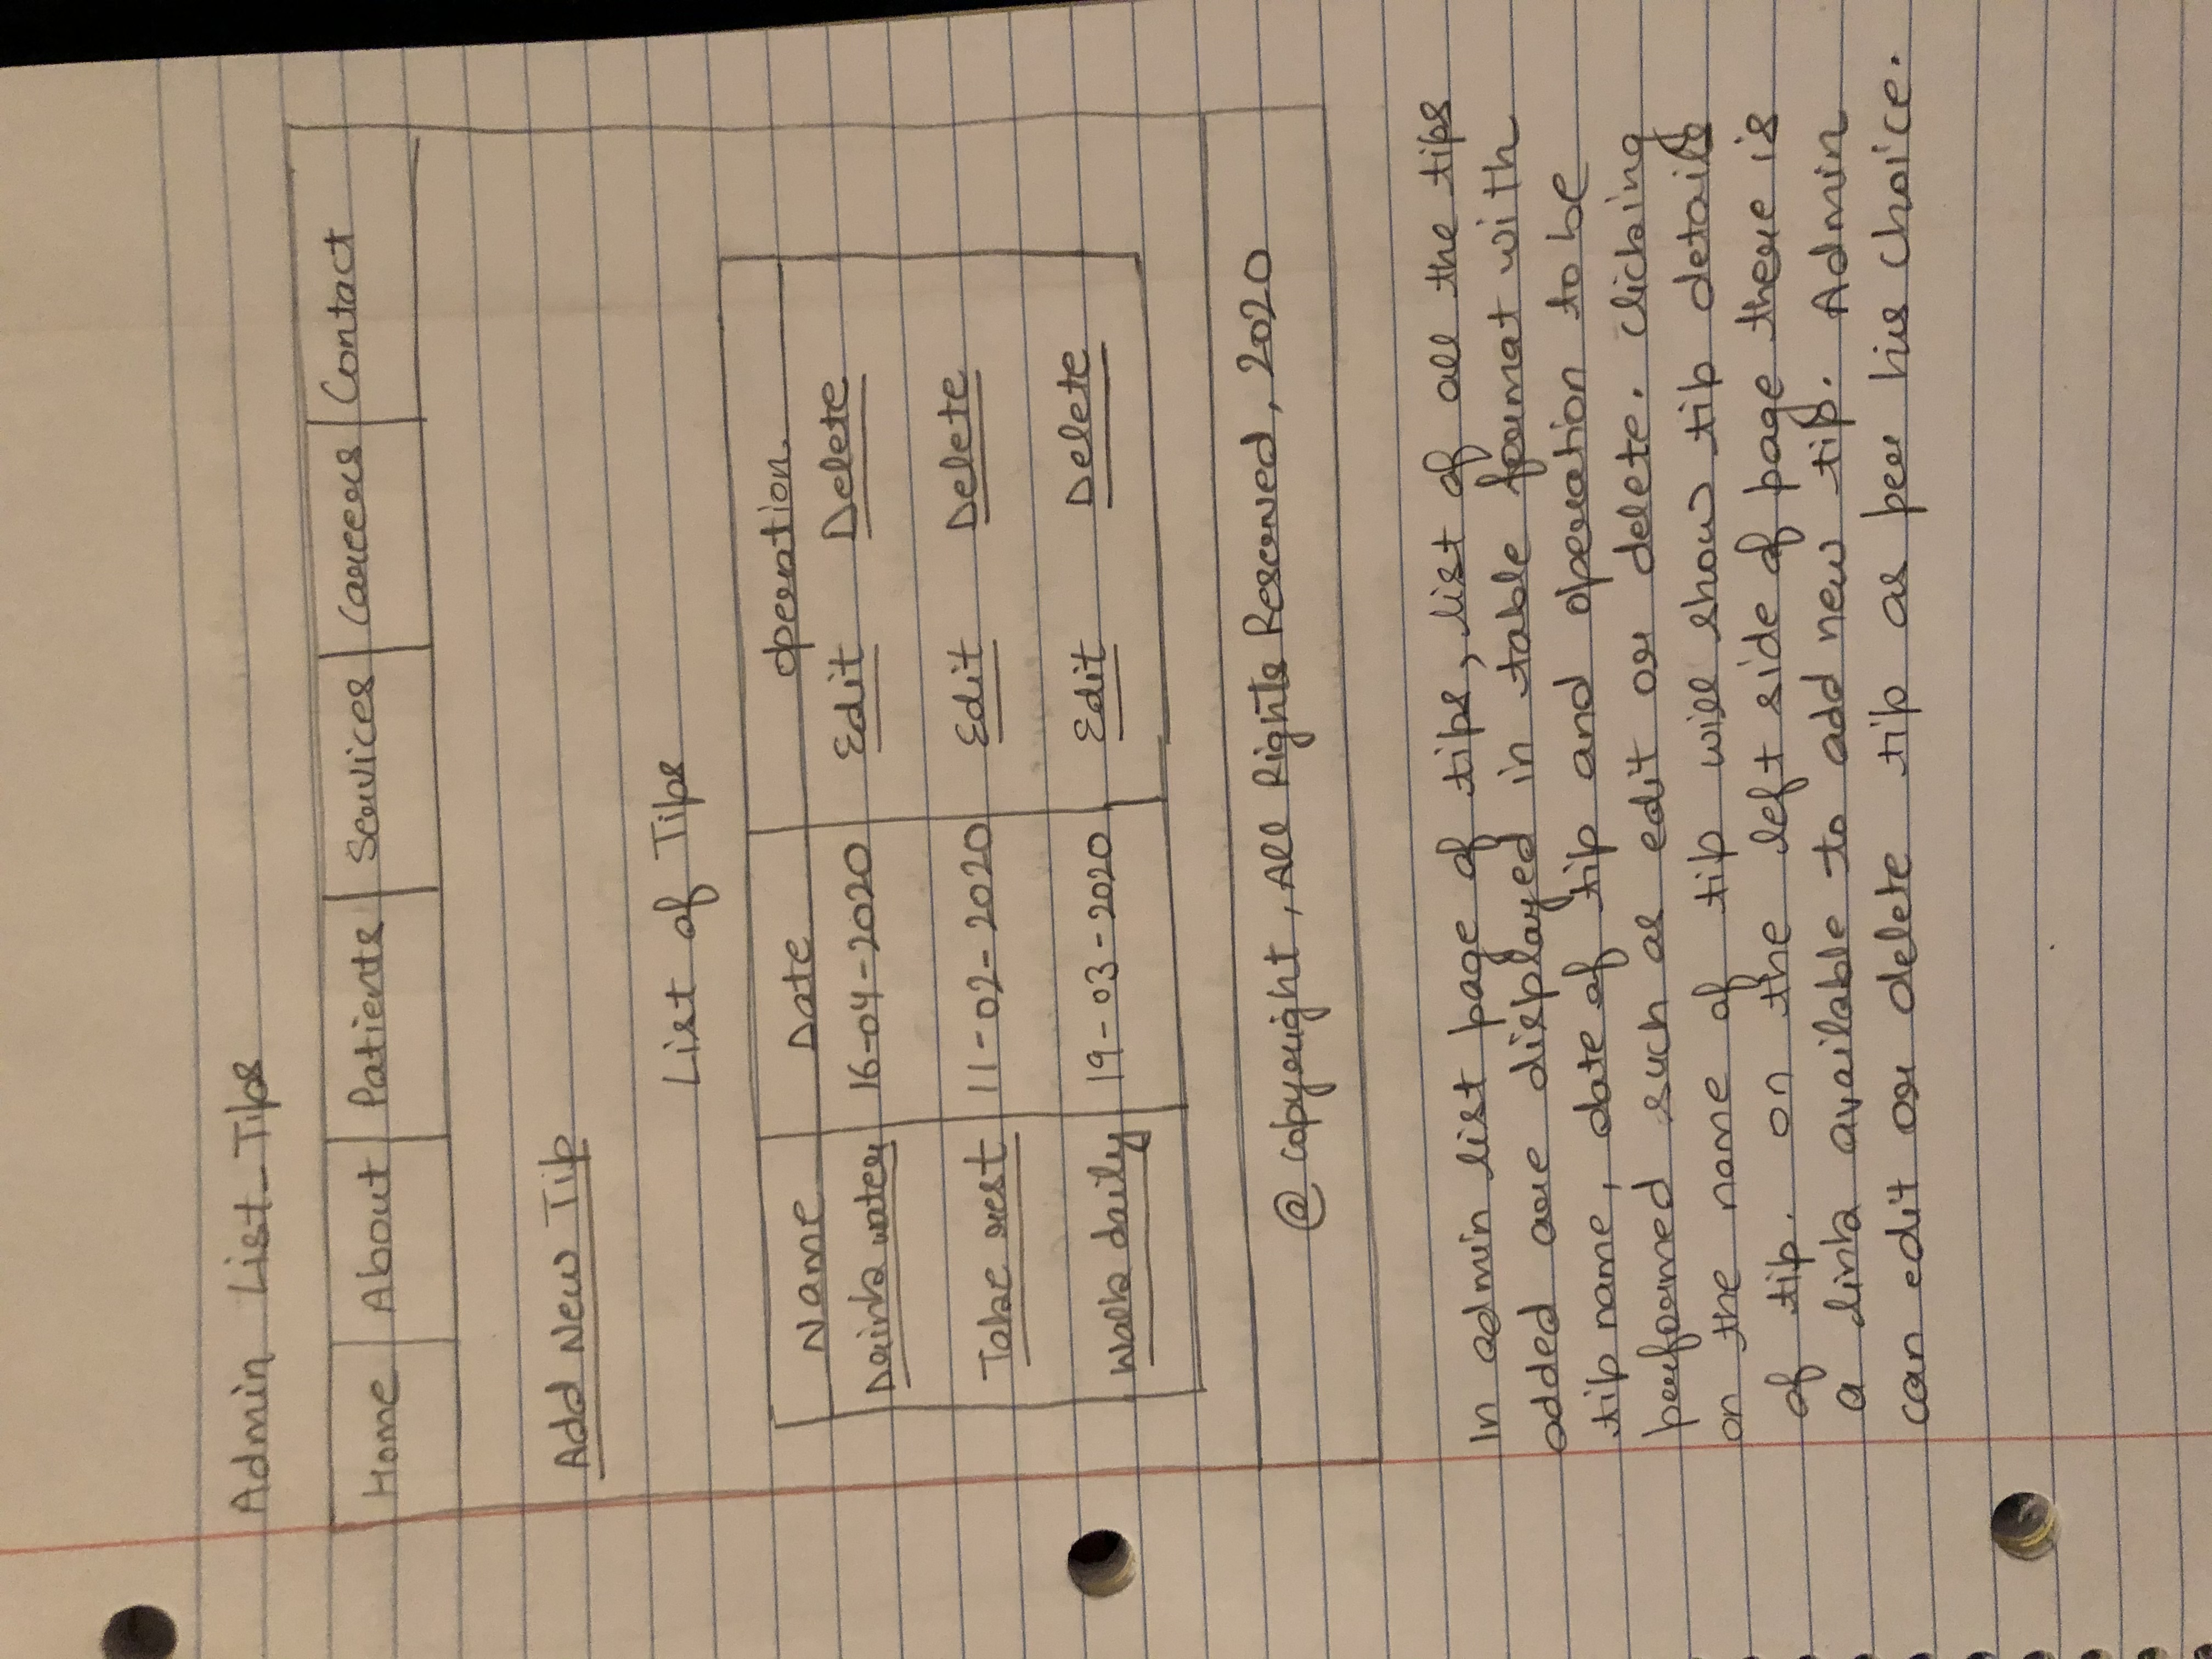 Admin List_Tips
Home About Patients Services Careers Contact
Add New Tip
List of Tips
Name Date operation
Drink water 16-04-2020 Edit Delete
Take rest 11-02-2020 Edit Delete
Walk daily 19-03-2020 Edit Delete
@ copyright, All Rights Reserved, 2020
In admin list page of tips, list of all the tips
added are displayed in table format with
tip name, date of tip and operation to be
performed such as edit or delete. clicking
on the name of tip will show tip details
of tip. on the left side of page there is
a link available to add new tip. Admin
can edit or delete tip as per his choice.